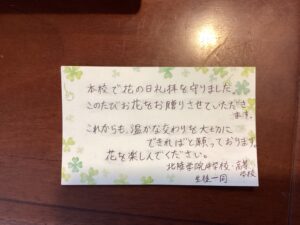 本校で花の日礼拝を守りました。
このたびお花をお贈りさせていただき
ます。
これからも、温かな交わりを大切に
できればと願っております。
花を楽しんでください。
北陸学院中学校・高等
学校
生徒一同